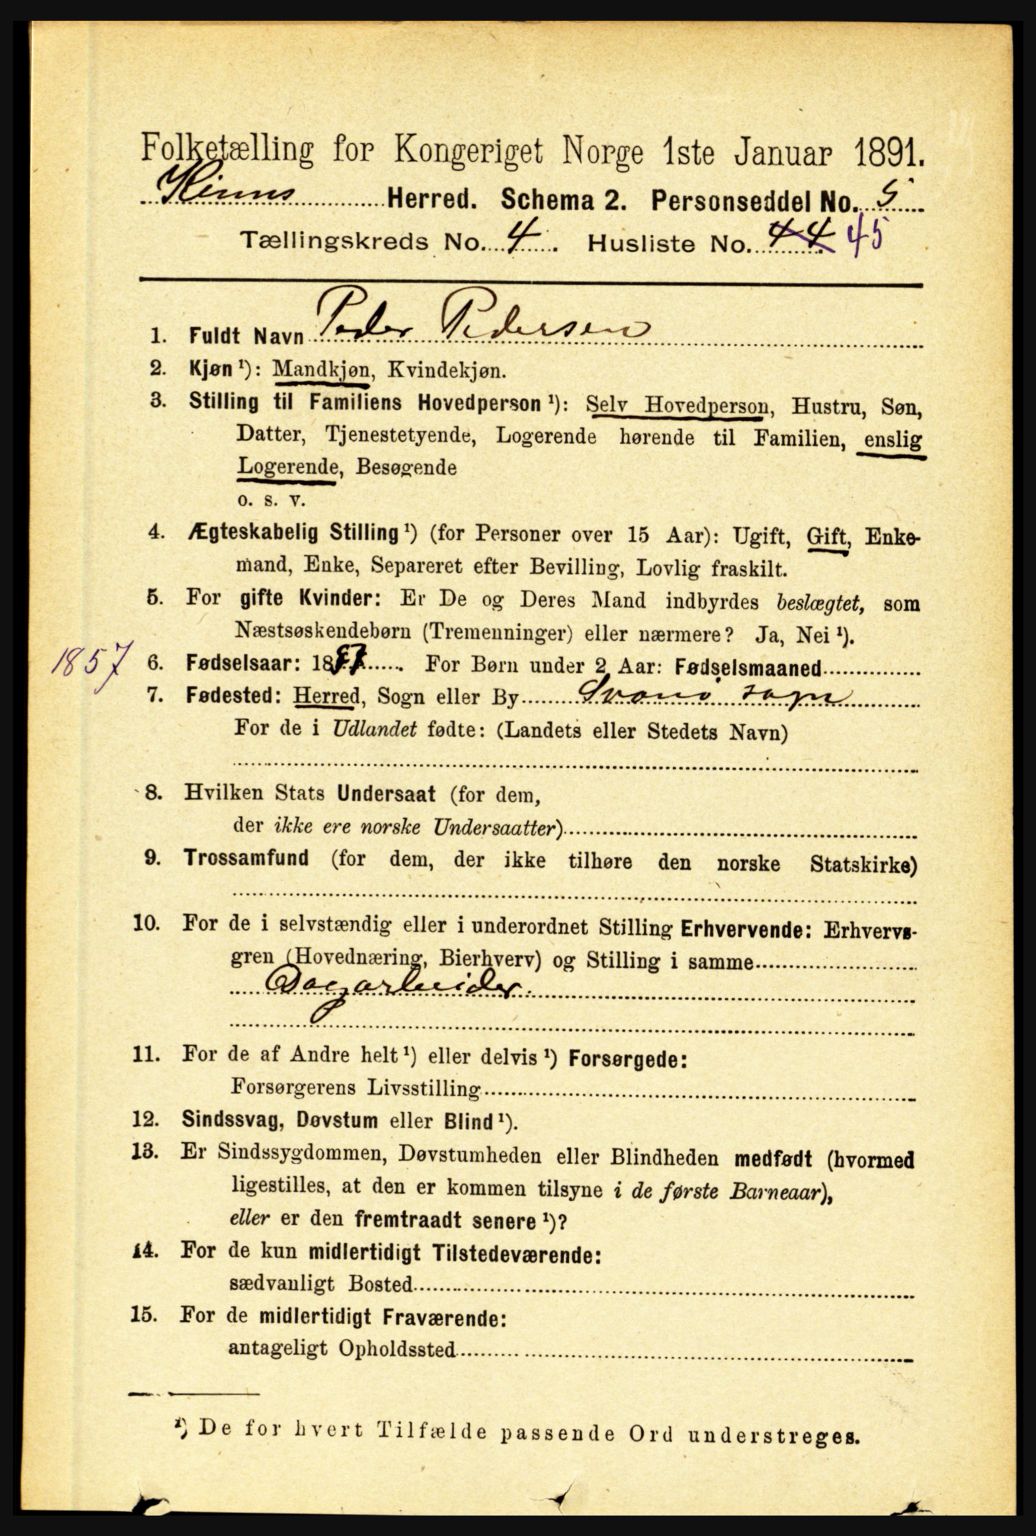 Folketælling for Kongeriget Norge 1ste Januar 1891.
Kinns Herred. Schema 2. Personseddel No. 5
Tællingskreds No. 4. Husliste No. 44 45
1. Fuldt Navn Peder Pedersen
2. Kjøn ¹): Mandkjøn, Kvindekjøn.
3. Stilling til Familiens Hovedperson ¹): Selv Hovedperson, Hustru, Søn,
Datter, Tjenestetyende, Logerende hørende til Familien, enslig
Logerende, Besøgende
o. s. v.
4. Ægteskabelig Stilling ¹) (for Personer over 15 Aar): Ugift, Gift, Enke-
mand, Enke, Separeret efter Bevilling, Lovlig fraskilt.
5. For gifte Kvinder: Er De og Deres Mand indbyrdes beslægtet, som
Næstsøskendebørn (Tremenninger) eller nærmere? Ja, Nei ¹).
1857 6. Fødselsaar: 1857. For Børn under 2 Aar: Fødselsmaaned
7. Fødested: Herred, Sogn eller By Svanø sogn
For de i Udlandet fødte: (Landets eller Stedets Navn)
8. Hvilken Stats Undersaat (for dem,
der ikke ere norske Undersaatter)
9. Trossamfund (for dem, der ikke tilhøre den norske Statskirke)
10. For de i selvstændig eller i underordnet Stilling Erhvervende: Erhvervs-
gren (Hovednæring, Bierhverv) og Stilling i samme
Dagarbeider.
11. For de af Andre helt ¹) eller delvis ¹) Forsørgede:
Forsørgerens Livsstilling
12. Sindssvag, Døvstum eller Blind ¹).
13. Er Sindssygdommen, Døvstumheden eller Blindheden medfødt (hvormed
ligestilles, at den er kommen tilsyne i de første Barneaar),
eller er den fremtraadt senere ¹)?
14. For de kun midlertidigt Tilstedeværende:
sædvanligt Bosted
15. For de midlertidigt Fraværende:
antageligt Opholdssted
¹) De for hvert Tilfælde passende Ord understreges.